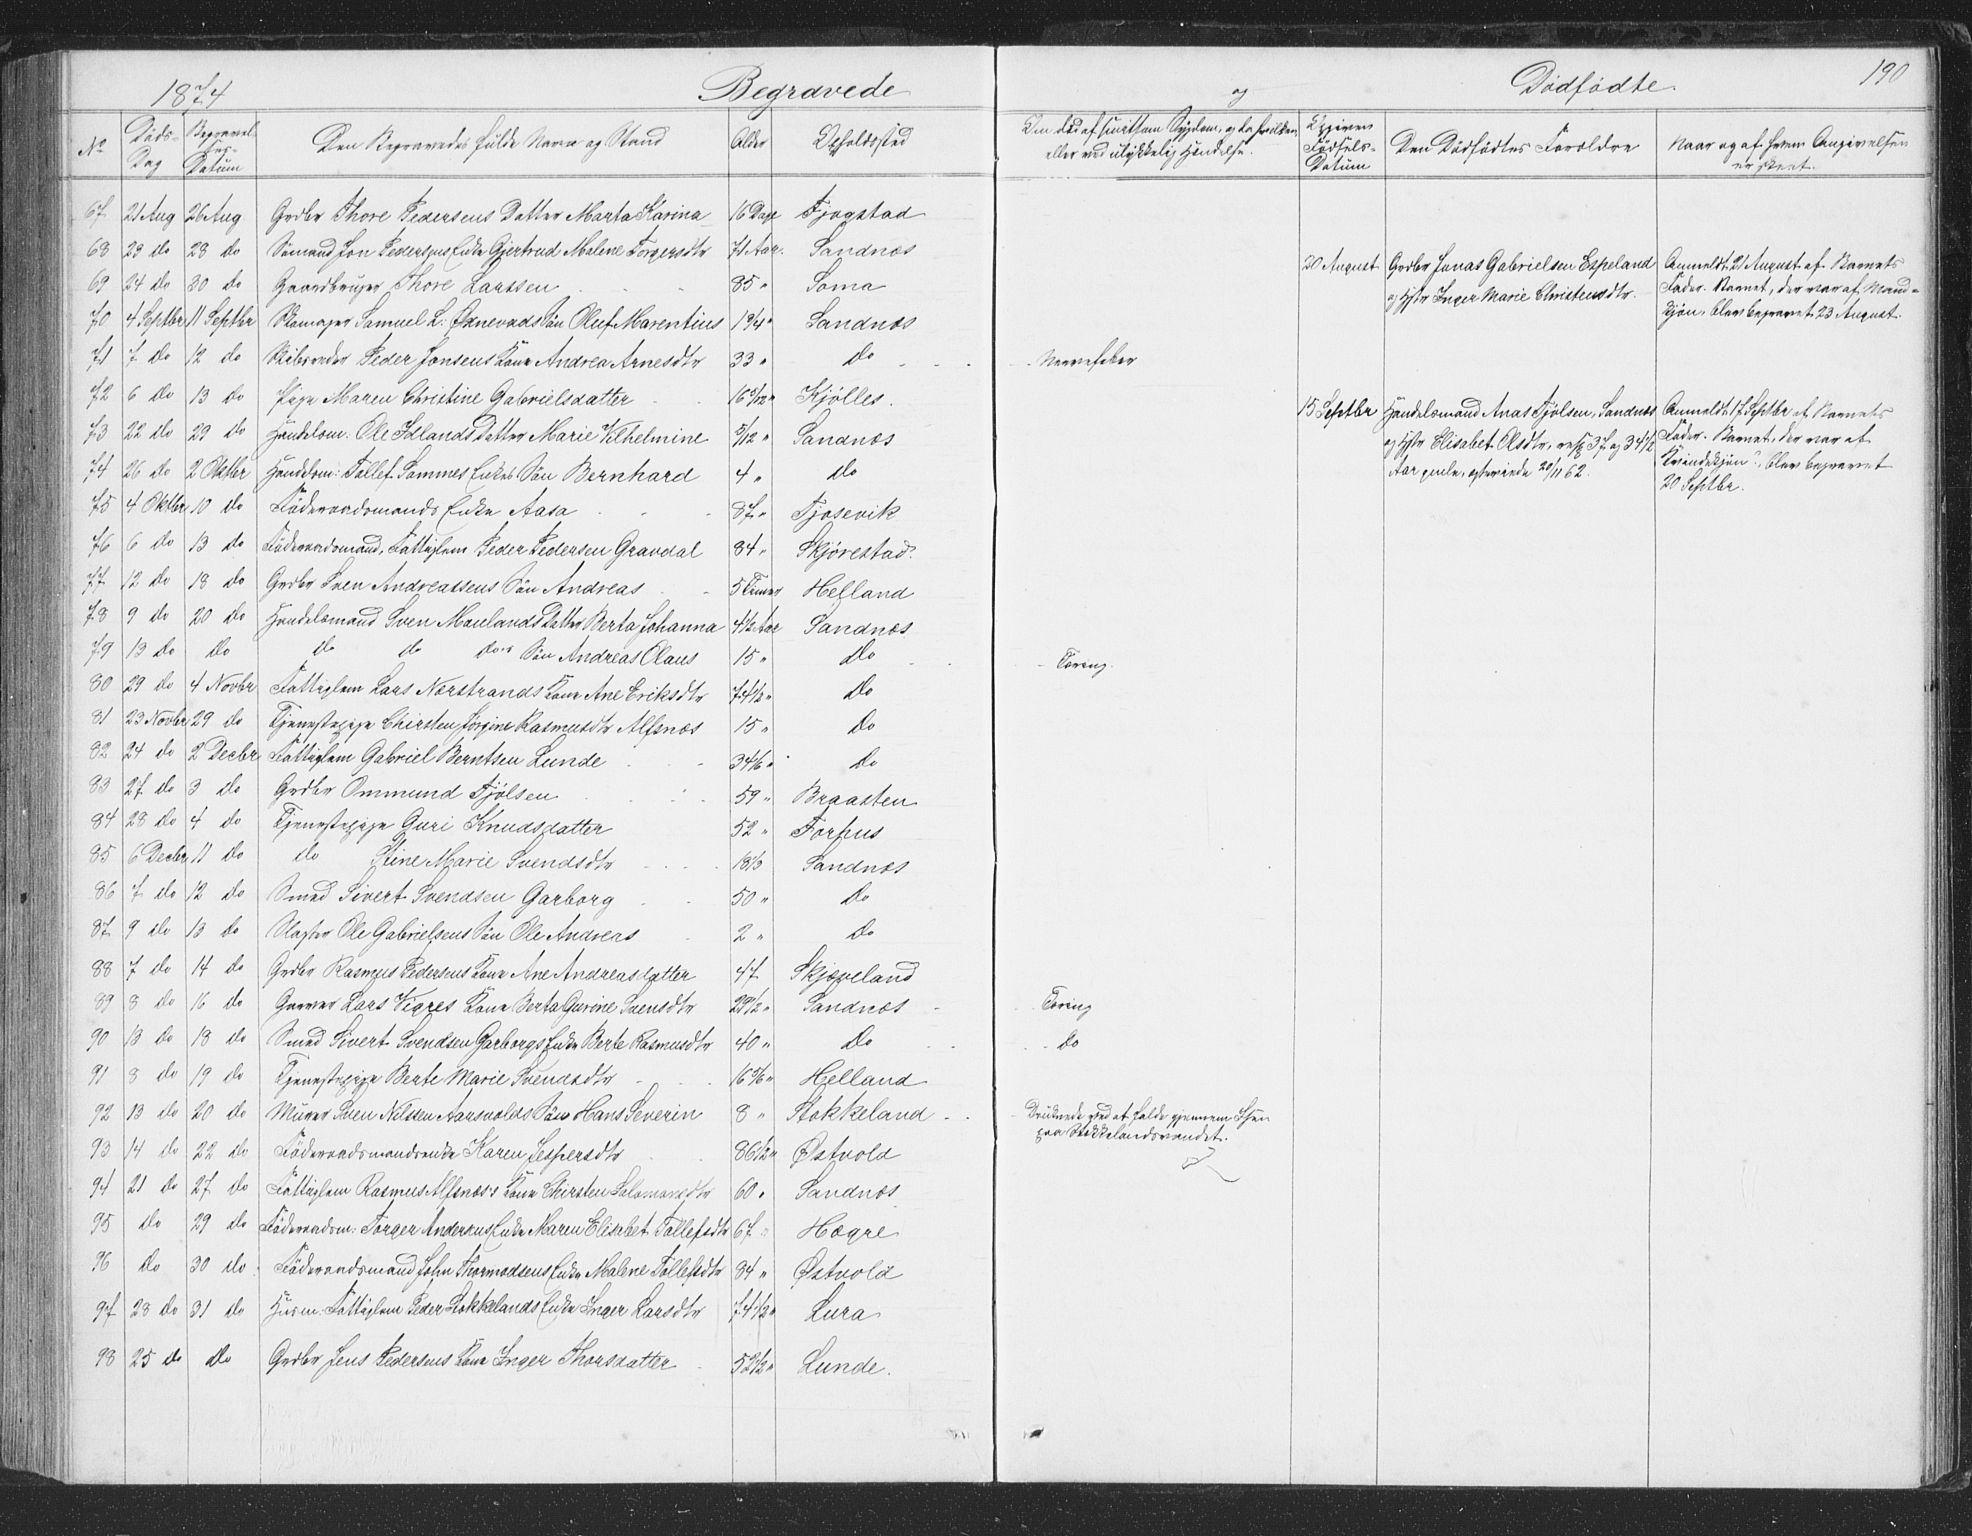 1874 Begravede og Dødfødte 190
No Døds-Dag Begravelses-Datum Den Begravedes fulde Navn og Stand Alder Opholdssted Om død af smitsom Sygdom, og da hvilken, eller ved ulykkelig Hændelse. Opgiven Fødsels-Datum Den Dødfødtes Forældre Naar og af hvem Angivelsen er skeet.
67 21 Aug 26 Aug Grdbr Thore Pedersens Datter Marta Karina 16 Dage Fjogstad
68 23 do 28 do Sømand Jon Pedersens Enke Gjertrud Malene Torgersdtr 71 Aar Sandnæs
69 24 do 30 do Gaardbruger Thore Larssen 85 " Soma
20 August Grdbr Jonas Gabrielsen Espeland og Hstr Inger Marie Christensdtr. Anmeldt 21 August af Barnets Fader. Barnet, der var af Mandkjøn, blev begravet 23 August.
70 4 Septbr 11 Septbr Skomager Samuel L. Øxnevads Søn Oluf Marentius 1 3/4 " Sandnæs
71 7 do 12 do Peder Jonsens Kone Andrea Arnesdtr 33 " do Nervefeber
72 6 do 13 do Pige Maren Christine Gabrielsdatter 16 5/12 " Kjølles
73 22 do 29 do Handelsm. Ole Idlands Datter Marie Vilhelmine 5/12 " Sandnæs
15 Septbr Handelsmand Anas Fjølsen, Sandnæs og Hstr Elisabet Olsdtr, resp. 37 og 34 1/2 Aar gamle, ægteviede 20/11 62. Anmeldt 17 Septbr af Barnets Fader. Barnet, der var af Kvindekjøn, blev begravet 20 Septbr.
74 26 do 2 Oktbr Handelsm: Tollef Sommes Enkes Søn Bernhard 4 " do
75 4 Oktbr 10 do Föderaadsmands Enke Aasa 87 " Tjosevik
76 6 do 13 do Föderaadsmand, Fattiglem Peder Pedersen Gravdal 84 " Skjørestad.
77 12 do 18 do Grdbr Sven Andreassens Søn Andreas 5 Timer Helland
78 9 do 20 do Handelsmand Sven Maulands Datter Berta Johanna 4 1/2 Aar Sandnæs
79 13 do do do do do's Søn Andreas Olaus 15 " do Tæring.
80 29 do 4 Novbr Fattiglem Lars Norstrands Kone Ane Eriksdtr 74 1/2 " do
81 23 Novbr 29 do Tjenestepige Chirsten Jorgine Rasmusdtr Alfsnæs 15 " do
82 24 do 2 Decbr Fattiglem Gabriel Berntsen Lunde 34 1/6 " do
83 27 do 3 do Grdbr Ommund Fjølsen 59 " Braasten
84 28 do 4 do Tjenestepige Guri Knudsdatter 52 " Forhus
85 6 Decbr 11 do do Stine Marie Svendsdtr 18 1/3 Sandnæs
86 7 do 12 do Smed Sivert Svendsen Garborg 50 " do
87 9 do 13 do Slagter Ole Gabrielsens Søn Ole Andreas 2 " do
88 7 do 14 do Grdbr Rasmus Pedersens Kone Ane Andreasdatter 47 Skjæveland
89 8 do 16 do Garver Lars Vigres Kone Berta Gurine Svensdtr 29 1/2 " Sandnæs Tæring
90 13 do 18 do Smed Sivert Svendsen Garborgs Enke Berte Rasmusdtr 40 " do do
91 8 do 19 do Tjenestepige Berte Marie Svendsdtr 16 5/6 " Helland
92 13 do 20 do Murer Sven Nilssen Aarsvolds Søn Hans Severin 8 " Stokkeland Druknede ved at falde gjennem Isen paa Stokkelandsvandet.
93 14 do 22 do Föderaadsmandsenke Karen Jespersdtr 86 1/2 " Østvold
94 21 do 27 do Fattiglem Rasmus Alfsnæs's Kone Chirsten Salomonsdtr 60 " Sandnæs
95 do 29 do Föderaadsm: Torger Anderssens Enke Maren Elisabet Tollefsdtr 67 " Hogre
96 do 30 do Föderaadsmand John Thormodsens Enke Malene Tollefsdtr 84 " Østvold
97 28 do 31 do Husm. Fattiglem Peder Stokkelands Enke Inger Larsdtr 74 1/2 " Lura
98 25 do do Grdbr Jens Pedersens Kone Inger Thorsdatter 52 1/2 " Lunde.